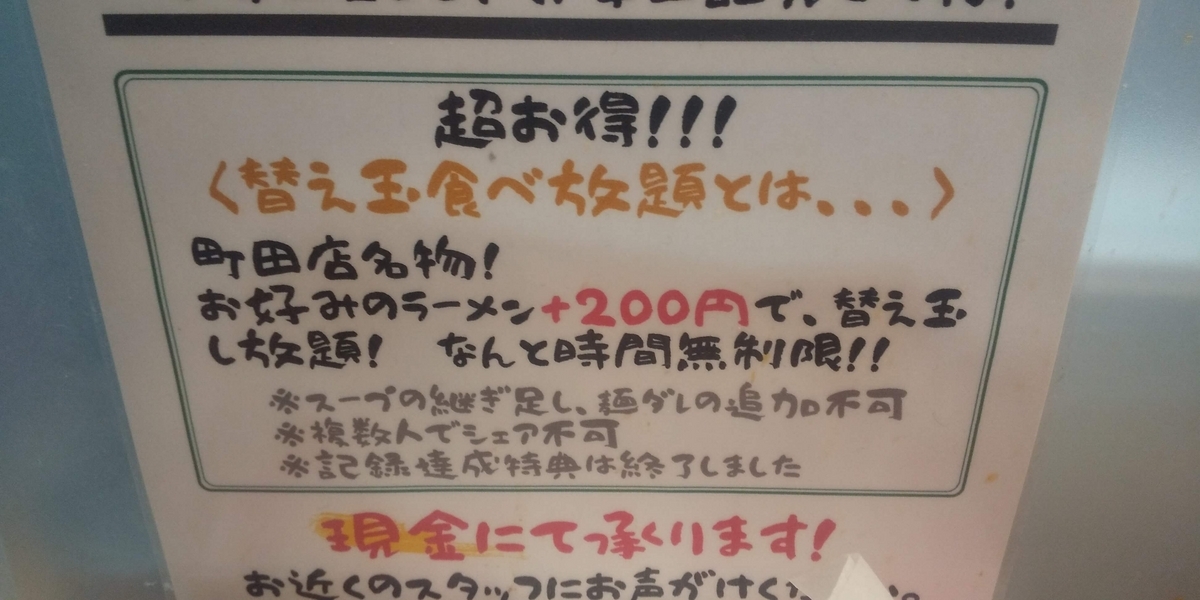 超お得!!!
〈替え玉食べ放題とは、、、〉
町田店名物!
お好みのラーメン+200円で、替え玉
し放題! なんと時間無制限!!
※スープの継ぎ足し、麺ダレの追加不可
※複数人でシェア不可
※記録達成特典は終了しました
現金にて承ります!
お近くのスタッフにお声がけく